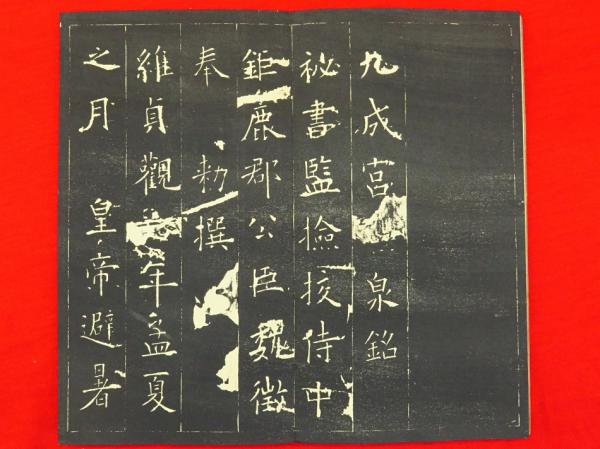 九成宮泉銘
秘書監撿挍侍中
鉅鹿郡公臣魏徵
奉 勑撰
維貞觀年孟夏
之月 皇帝避暑